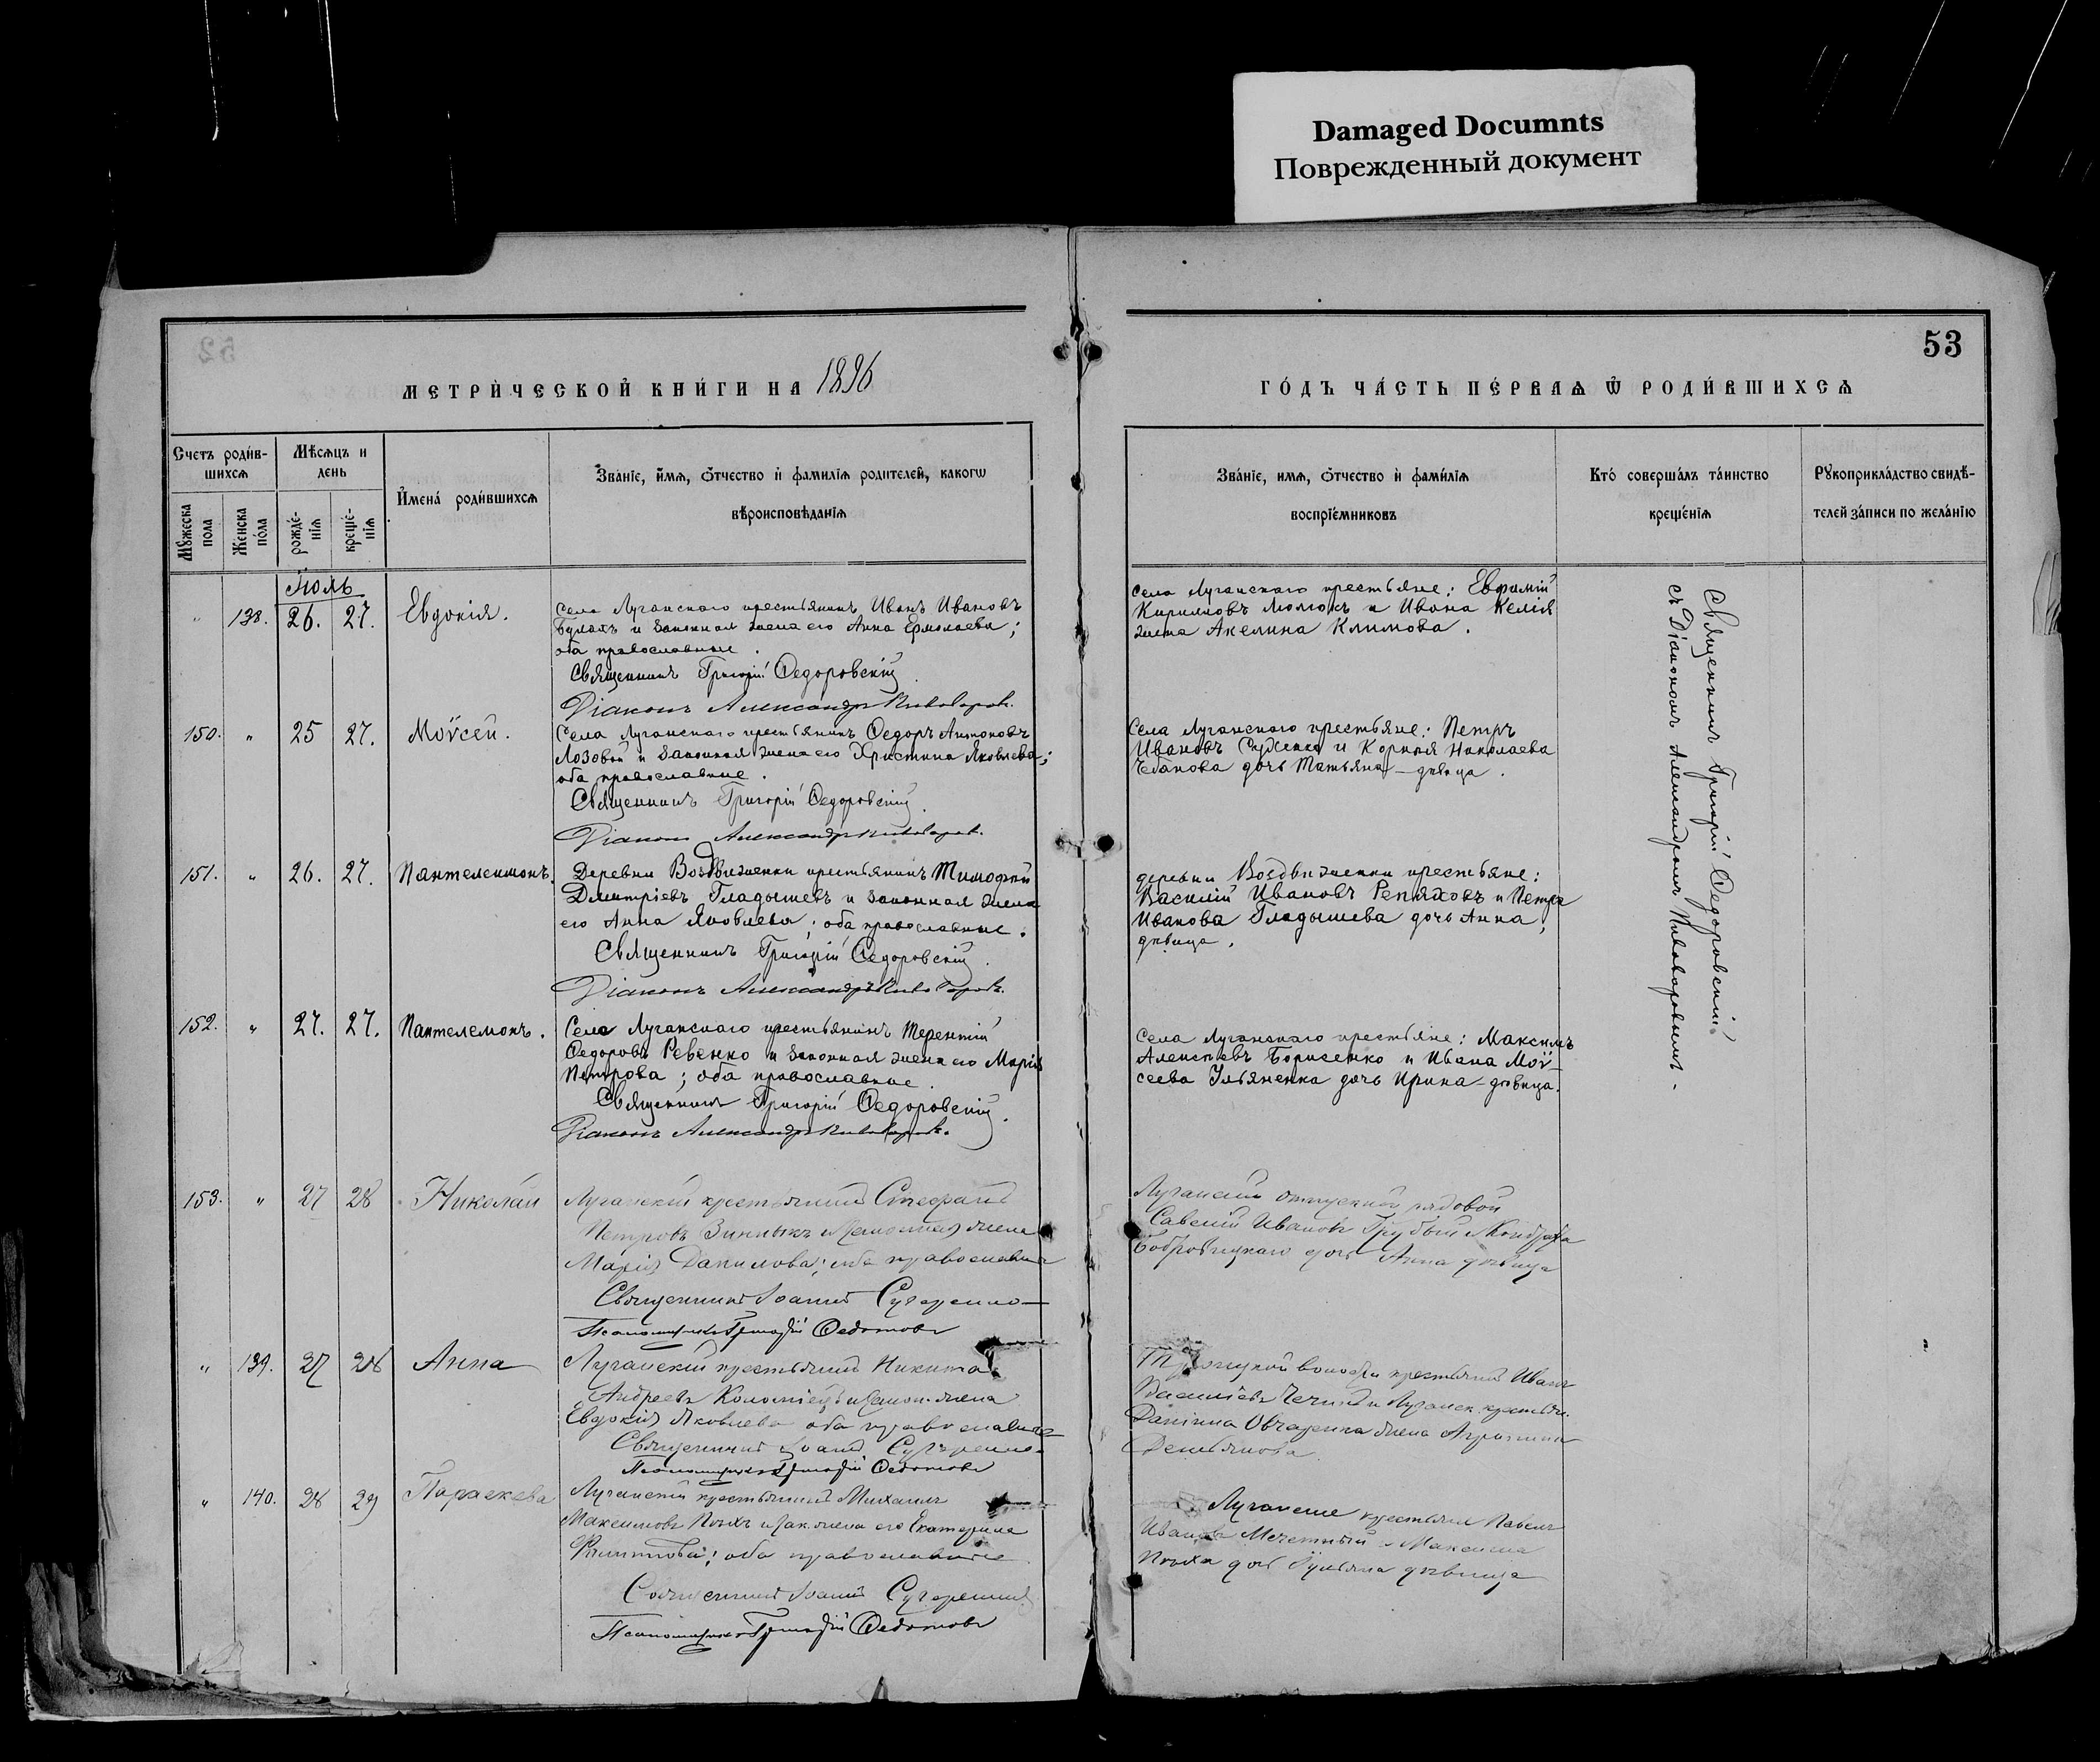 Damaged Documnts
Поврежденный документ
53
МЕТРИЧЕСКОЙ КНИГИ НА 1896
ГОДЪ ЧАСТЬ ПЕРВАѦ Ѿ РОДИВШИХСѦ
Счетъ родив-
шихсѧ
Мѣсѧцъ и
день
Мꙋжеска
пола
Женска
пола
рожде-
нїѧ
креще-
нїѧ
Имена родившихсѧ
Званїе, имѧ, ѿчество и фамилїѧ родителей, какогѡ
вѣроисповѣданїѧ
Званїе, имѧ, ѿчество и фамилїѧ
воспрїемниковъ
Кто совершалъ таинство
крещенїѧ
Рꙋкоприкладство свидѣ-
телей записи по желанїю
Іюль
" 138. 26. 27. Евдокія.
Села Луганскаго крестьянинъ Иванъ Ивановъ
и законная жена его Анна Ермолаева;
оба православные.
Священникъ Григорій Ѳедоровскій
Діаконъ Александръ Пивоваровъ.
Села Луганскаго крестьяне: Евфимій
Кирилловъ и Ивана
жена Акелина Климова.
150. " 25 27. Моѵсей.
Села Луганскаго крестьянинъ Ѳедоръ Антоновъ
Лозовой и законная жена его Христина Яковлева;
оба православные.
Священникъ Григорій Ѳедоровскій
Діаконъ Александръ Пивоваровъ.
Села Луганскаго крестьяне: Петръ
Ивановъ и Корнія Николаева
Чебанова дочь Татьяна - дѣвица.
151. " 26. 27. Пантелеимонъ.
Деревни Воздвиженки крестьянинъ Тимоѳей
Димитріевъ Гладышевъ и законная жена
его Анна Яковлева; оба православные.
Священникъ Григорій Ѳедоровскій
Діаконъ Александръ Пивоваровъ.
деревни Воздвиженки крестьяне:
Василій Ивановъ Репяховъ и Петра
Иванова Гладышева дочь Анна,
дѣвица.
152. " 27. 27. Пантелемонъ.
Села Луганскаго крестьянинъ Терентій
Ѳедоровъ Ревенко и законная жена его Марія
Петрова; оба православные.
Священникъ Григорій Ѳедоровскій.
Діаконъ Александръ Пивоваровъ.
Села Луганскаго крестьяне: Максимъ
Алексѣевъ Борисенко и Ивана Моѵ-
сеева Ульяненка дочь Ирина - дѣвица.
Священникъ Григорій Ѳедоровскій
съ Діакономъ Александромъ Пивоваровымъ.
153. " 27 28 Николай
Луганскій крестьянинъ Стефанъ
Петровъ и законная жена
Марія Данилова; оба православные
Священникъ Іоаннъ
Псаломщикъ Григорій Ѳедотовъ
Луганскій отпускной рядовой
Савелій Ивановъ Грубый и Кондрата
Бобровицкаго дочь Анна дѣвица
" 139. 27 28 Анна
Луганскій крестьянинъ Никита
Андреевъ Коломіецъ и закон. жена
Евдокія Яковлева оба православные
Священникъ Іоаннъ
Псаломщикъ Григорій Ѳедотовъ
волости крестьянинъ Иванъ
Василіевъ и Луганск. крестьян.
Даніила Овчаренка жена
Демьянова
" 140. 28 29 Параскева
Луганскій крестьянинъ Михаилъ
Максимовъ и зак. жена его Екатерина
Филиппова; оба православные
Священникъ Іоаннъ
Псаломщикъ Григорій Ѳедотовъ
Луганскіе крестьяне Павелъ
Ивановъ Мечетный и Максима
дочь дѣвица